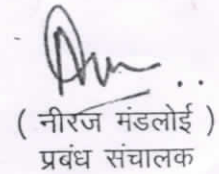 ( नीरज मंडलोई )
प्रबंध संचालक